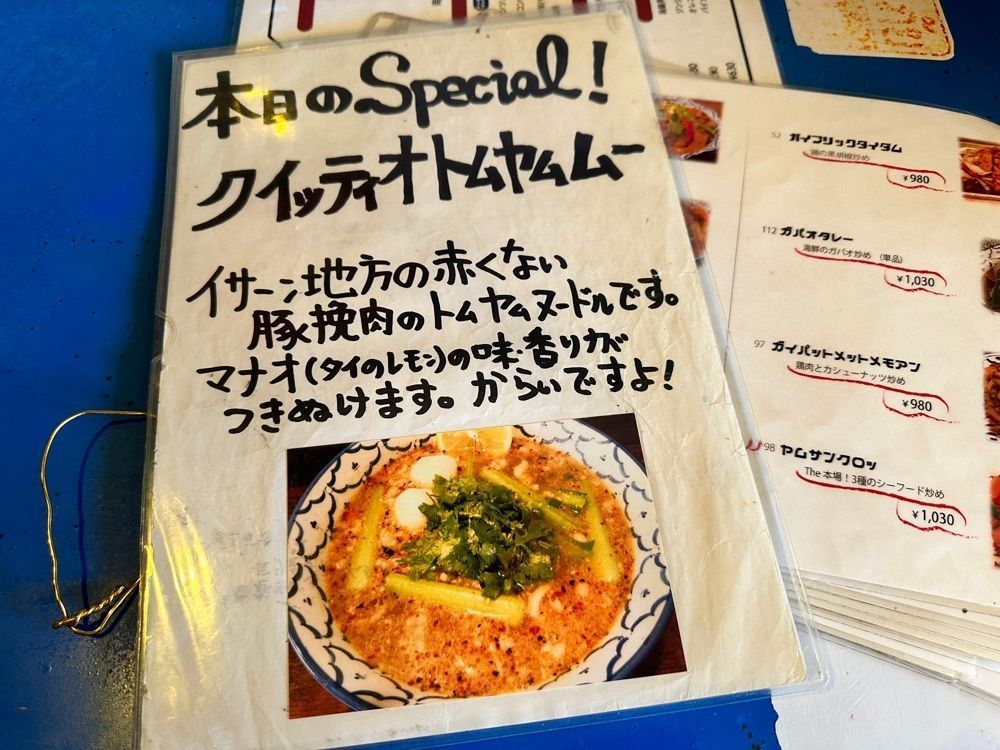 本日のSpecial!
クイッティオトムヤムムー
イサーン地方の赤くない
豚挽肉のトムヤムヌードルです。
マナオ(タイのレモン)の味・香りが
つきぬけます。からいですよ!
52 ガイプリックタイダム
鶏の黒胡椒炒め
¥980
112 ガパオタレー
海鮮のガパオ炒め (単品)
¥1,030
97 ガイパットメットメモアン
鶏肉とカシューナッツ炒め
¥980
98 ヤムサンクロッ
The 本場!3種のシーフード炒め
¥1,030